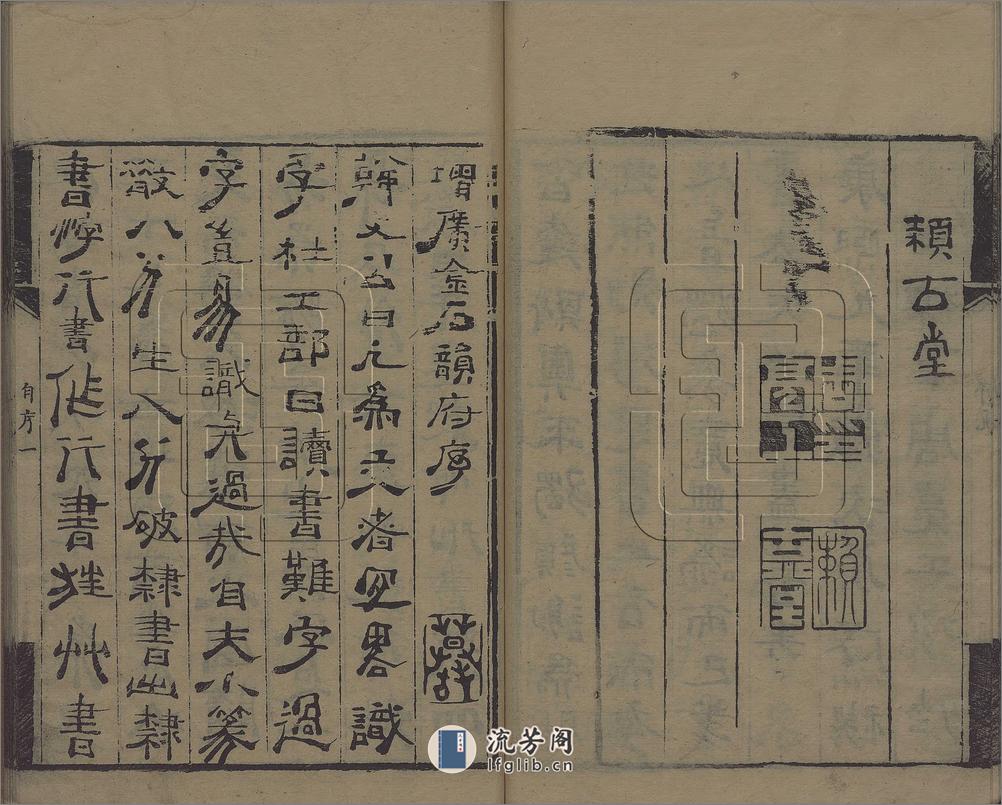 賴古堂
增廣金石韻府序
韓文公曰凡爲文者宜畧識
字杜工部曰讀書難字過
字豈易識
過哉自夫小篆
散八分生八分破隸書出隸
書悖行書作行書狂艸書
自方一
流芳阁
lfglib.cn